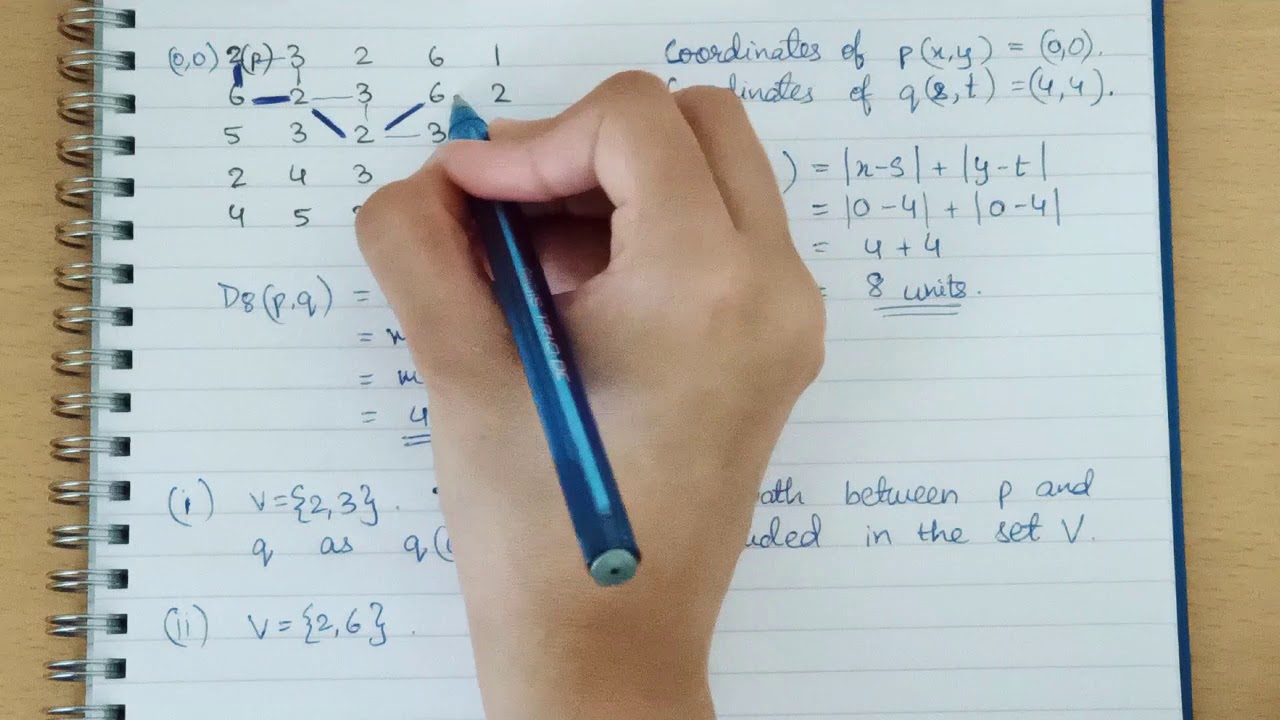 (0,0) 2(p) 3 2 6 1
6 2 3 6 2
5 3 2 3
2 4 3
4 5
Coordinates of p(x,y) = (0,0).
of q(s,t) = (4,4).
) = |x-s| + |y-t|
= |0-4| + |0-4|
= 4+4
8 units.
D8(p,q) =
=
=
= 4
(i) V={2,3}. between p and
q as in the set V.
(ii) V={2,6}.